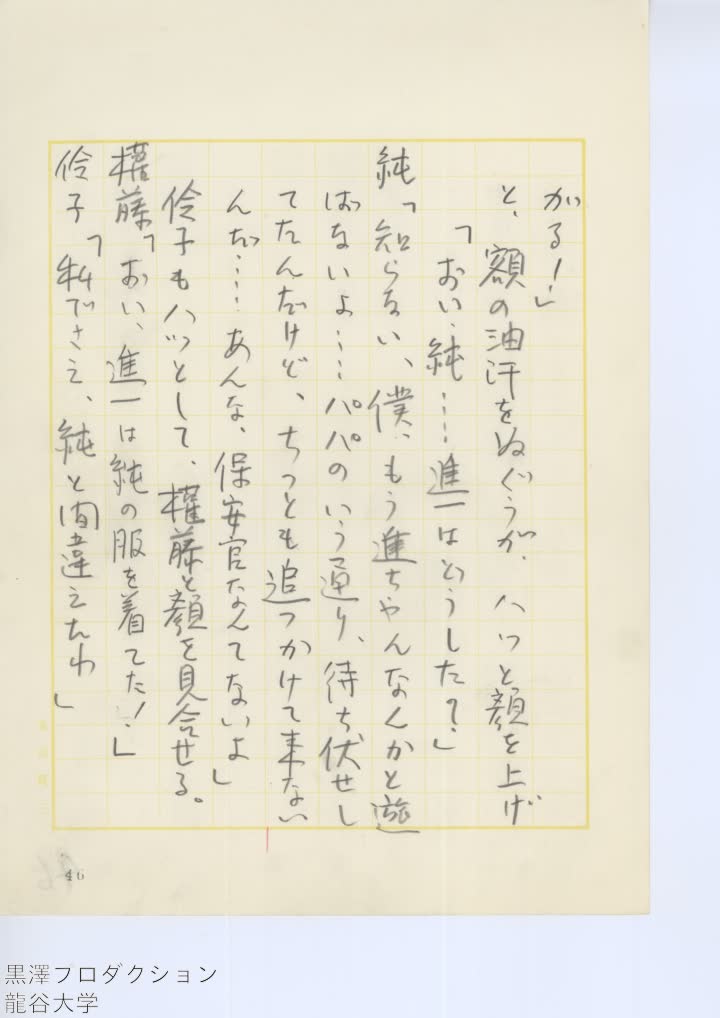 がる!」
と、額の油汗をぬぐうが、ハッと顔を上げ
「おい、純……進一はどうした?」
純「知らない、僕、もう進ちゃんなんかと遊
ばないよ……パパのいう通り、待ち伏せし
てたんだけど、ちっとも追っかけて来ない
んだ……あんな、保安官なんてないよ」
伶子もハッとして、権藤と顔を見合せる。
権藤「おい、進一は純の服を着てた!」
伶子「私でさえ、純と間違えたわ」
46
黒澤プロダクション
龍谷大学